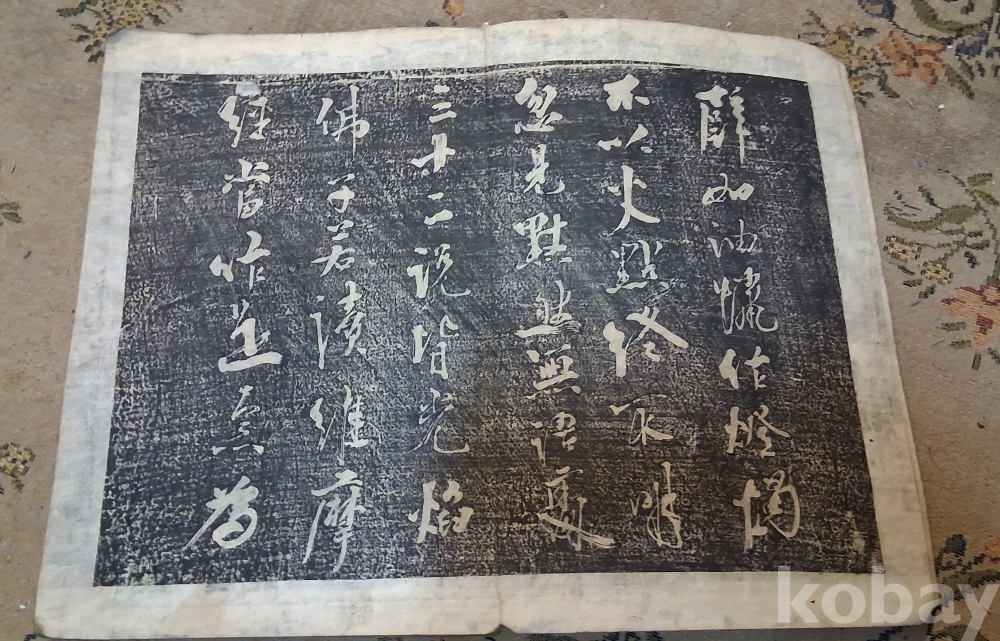 薜如油蠟作燈燭
不以火點終不明
忽見默然無語處
三卅二說皆光焰
佛子若讀維摩
經當作是念為
kobay